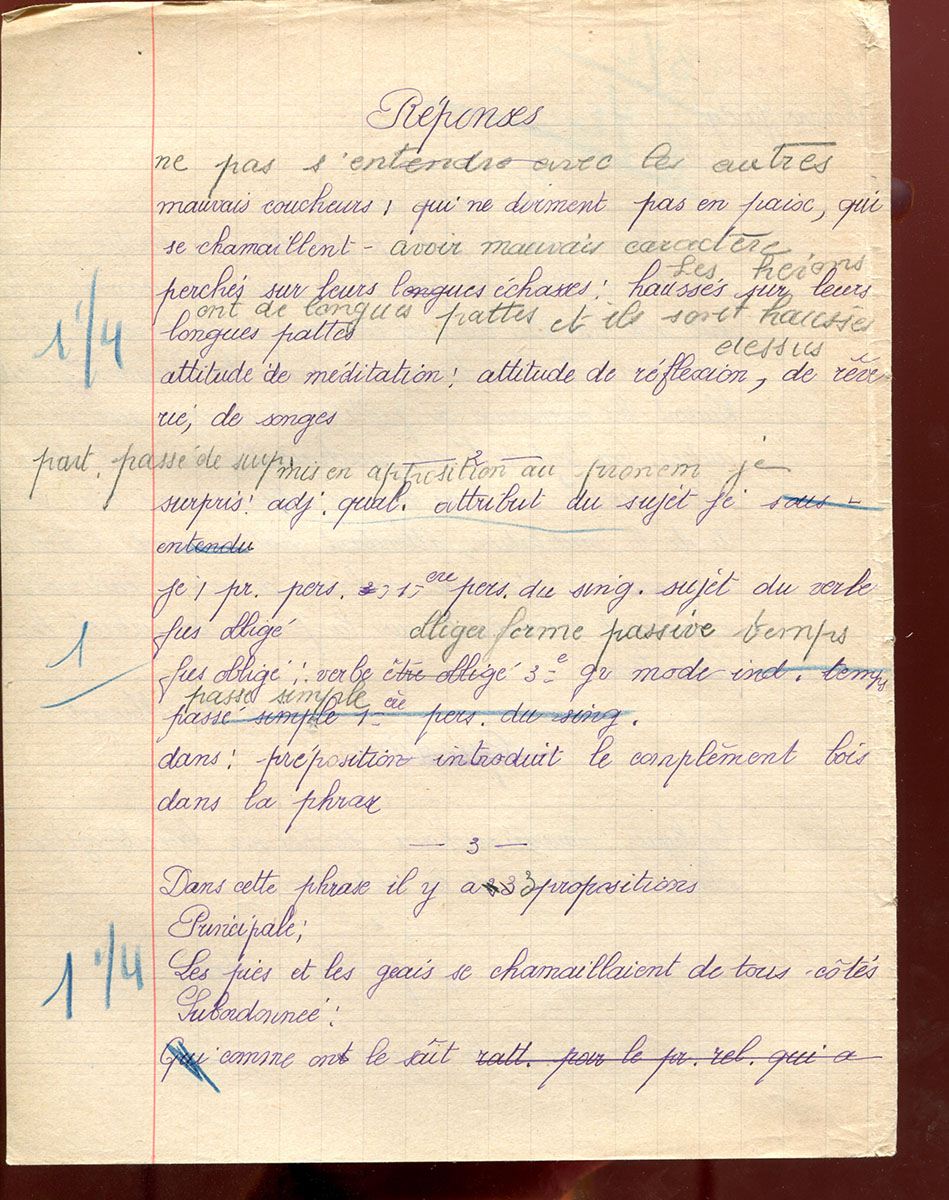 Réponses
ne pas s'entendre avec les autres
mauvais coucheurs : qui ne dirment pas en paix, qui
se chamaillent - avoir mauvais caractère
Les hérons
perchés sur leurs longues échasses : haussés sur leurs
ont de longues pattes et ils sont hausses
longues pattes
dessus
1 1/4
attitude de méditation : attitude de réflexion, de rêve
rie, de songes
2
part. passé de surp. mis en apposition au pronom je
surpris : adj. qual. attribut du sujet je sous-
entendu
je : pr. pers. 1ère pers. du sing. sujet du verbe
fus obligé obliger forme passive temps
1
fus obligé : verbe être obligé 3e gr mode ind. temps
passé simple
passé simple 1ère pers. du sing.
dans : préposition introduit le complément bois
dans la phrase
— 3 —
Dans cette phrase il y a 3 propositions
Principale :
1 1/4
Les pies et les geais se chamaillaient de tous côtés
Subordonnée :
Qui comme ont le sait ratt. par le pr. rel. qui a